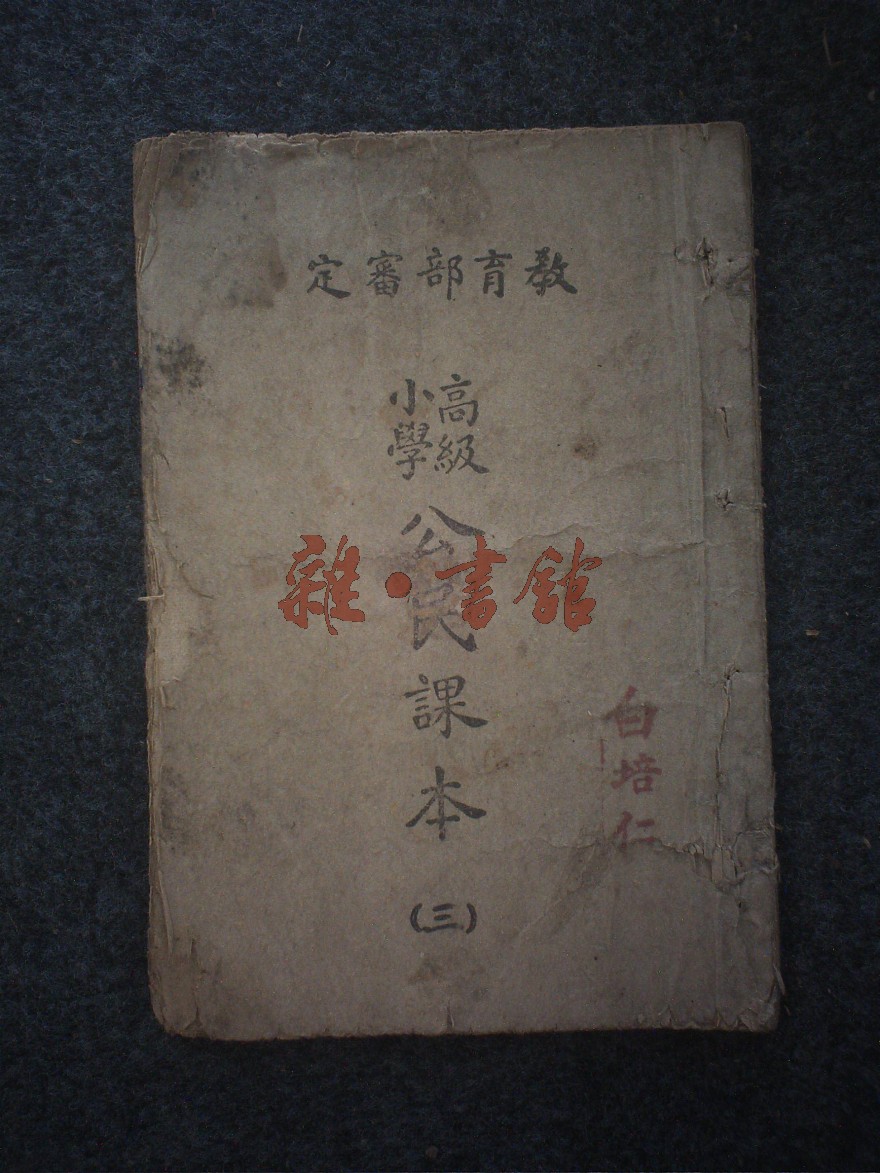 教育部審定
高級
小學
公民課本
(三)
雜·書館
白培仁